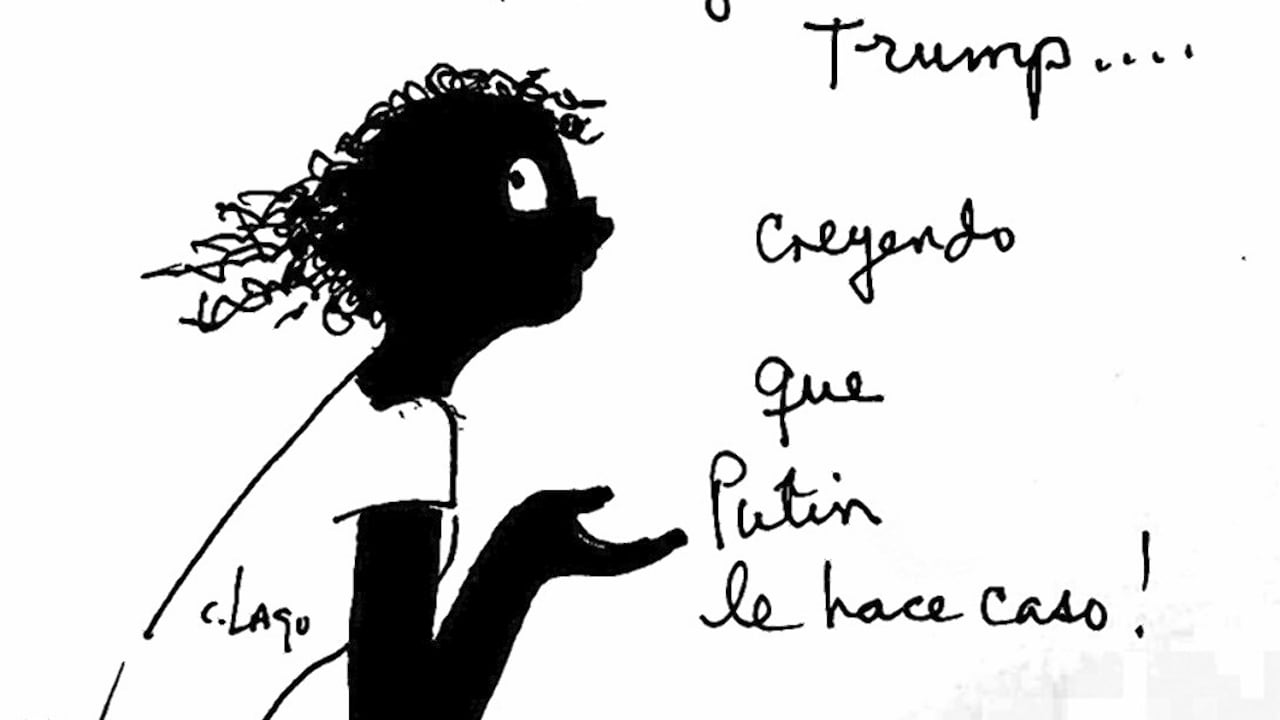 Trump....
creyendo
que
Putin
le hace caso!
C.LAGO